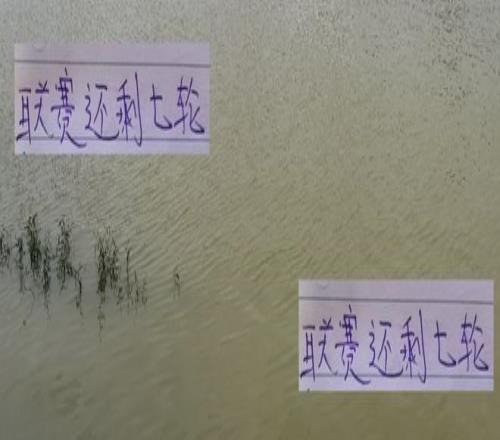 联赛还剩七轮
联赛还剩七轮